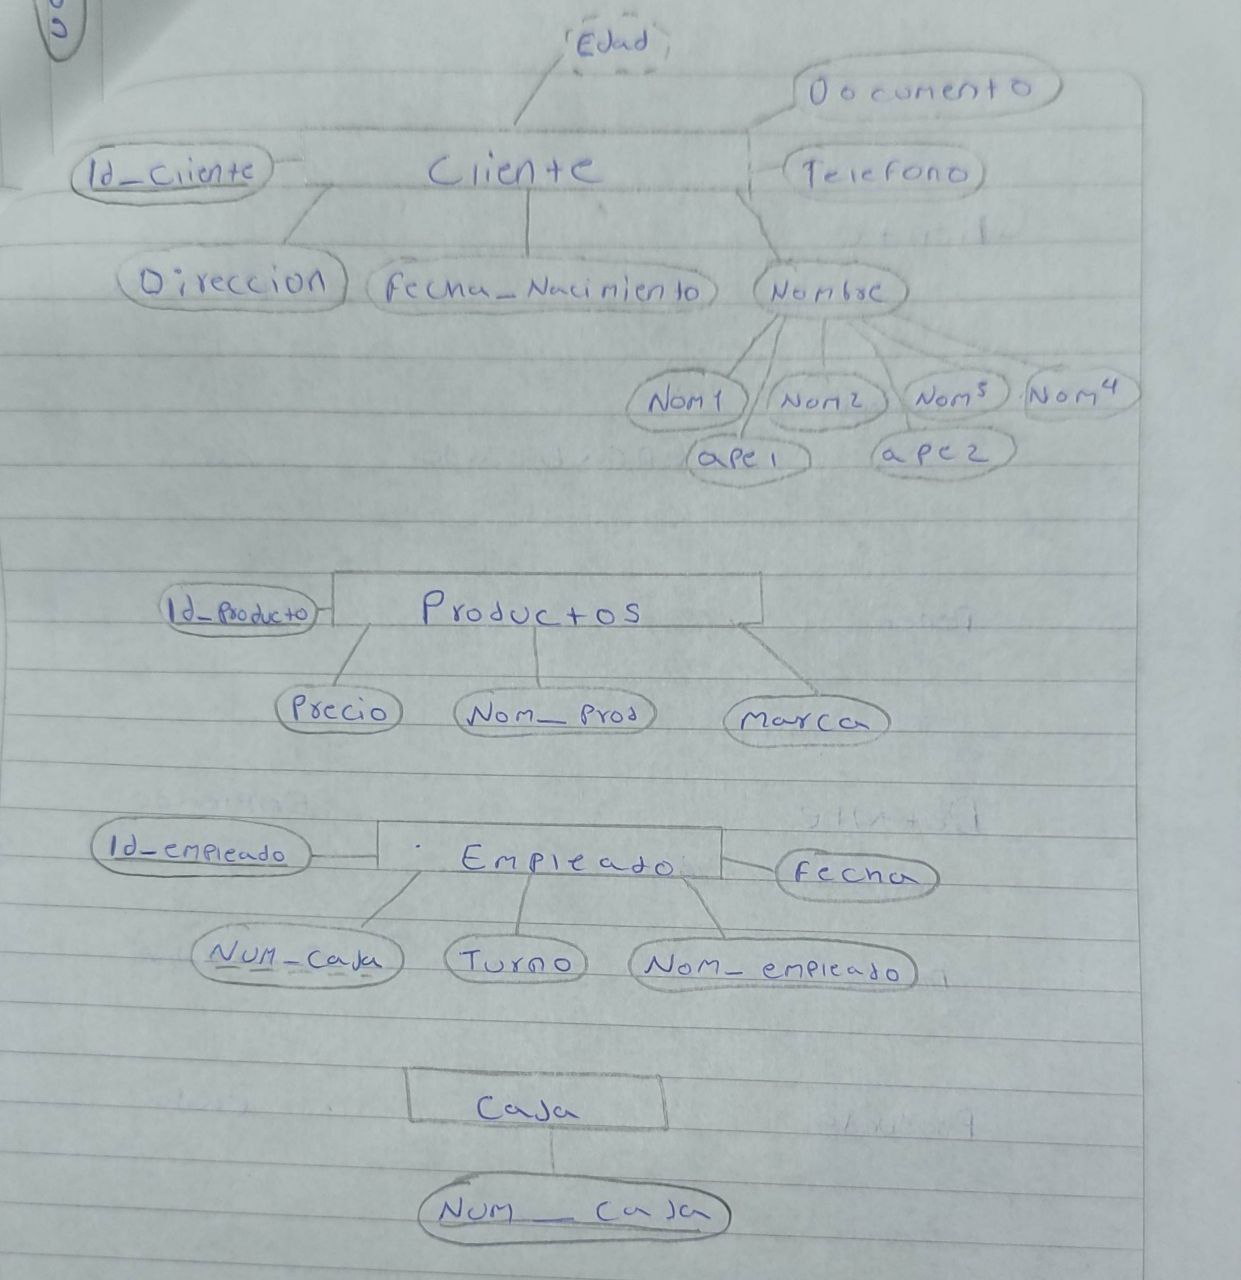 Edad
Documento
Id_Cliente
Cliente
Telefono
Direccion
Fecha_Nacimiento
Nombre
Nom1
Nom2
Nom3
Nom4
ape1
ape2
Id_Producto
Productos
Precio
Nom_Prod
Marca
Id_empleado
Empleado
Fecha
Num_Caja
Turno
Nom_empleado
Caja
Num_Caja